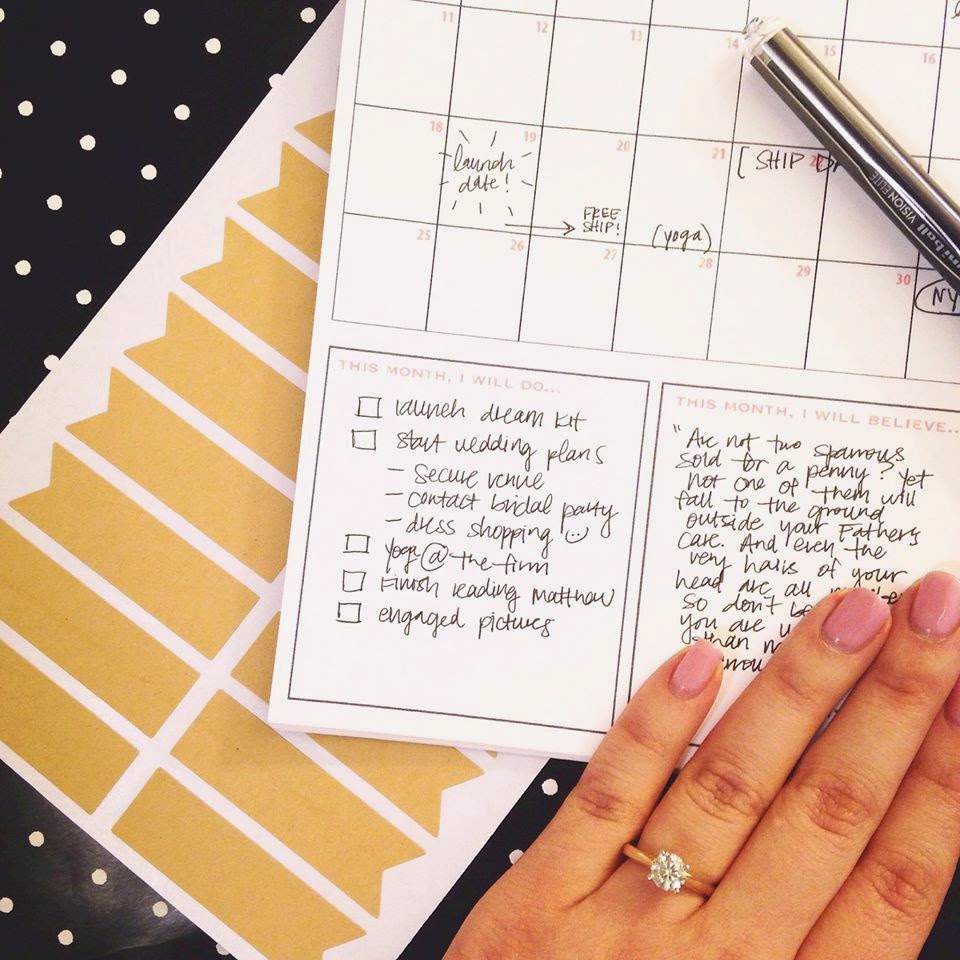 11 12 13 14 15 16
18 19 20 21
launch
date!
[ SHIP
FREE
SHIP!
(yoga)
25 26 27 28 29 30
NY
uniball VISION ELITE
THIS MONTH, I WILL DO...
launch dream kit
start wedding plans
- secure venue
- contact bridal party
- dress shopping
yoga @ the firm
Finish reading Matthew
engaged pictures
THIS MONTH, I WILL BELIEVE...
"Are not two sparrows
sold for a penny? Yet
not one of them will
fall to the ground
outside your Father's
care. And even the
very hairs of your
head are all
so don't
you are
than